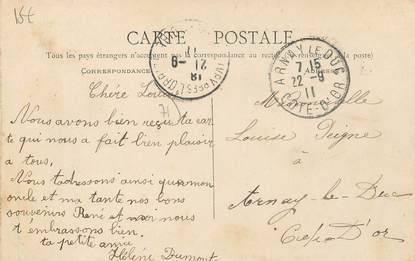 15t
CARTE POSTALE
Tous les pays étrangers n'acceptent pas la correspondance au recto
CORRESPONDANCE
Chère Louise
Nous avons bien reçu ta car
te qui nous a fait bien plaisir
a tous.
Nous t'adressons ainsi que mon
oncle et ma tante nos bons
souvenirs René et moi nous
t'embrassons bien.
ta petite amie
Hélène Dumont
ARNAY LE DUC
7 15
22 -9
11
CÔTE-D'OR
11
21 -9
18
Mademoiselle
Louise
à
Arnay-le-Duc
Côte d'or